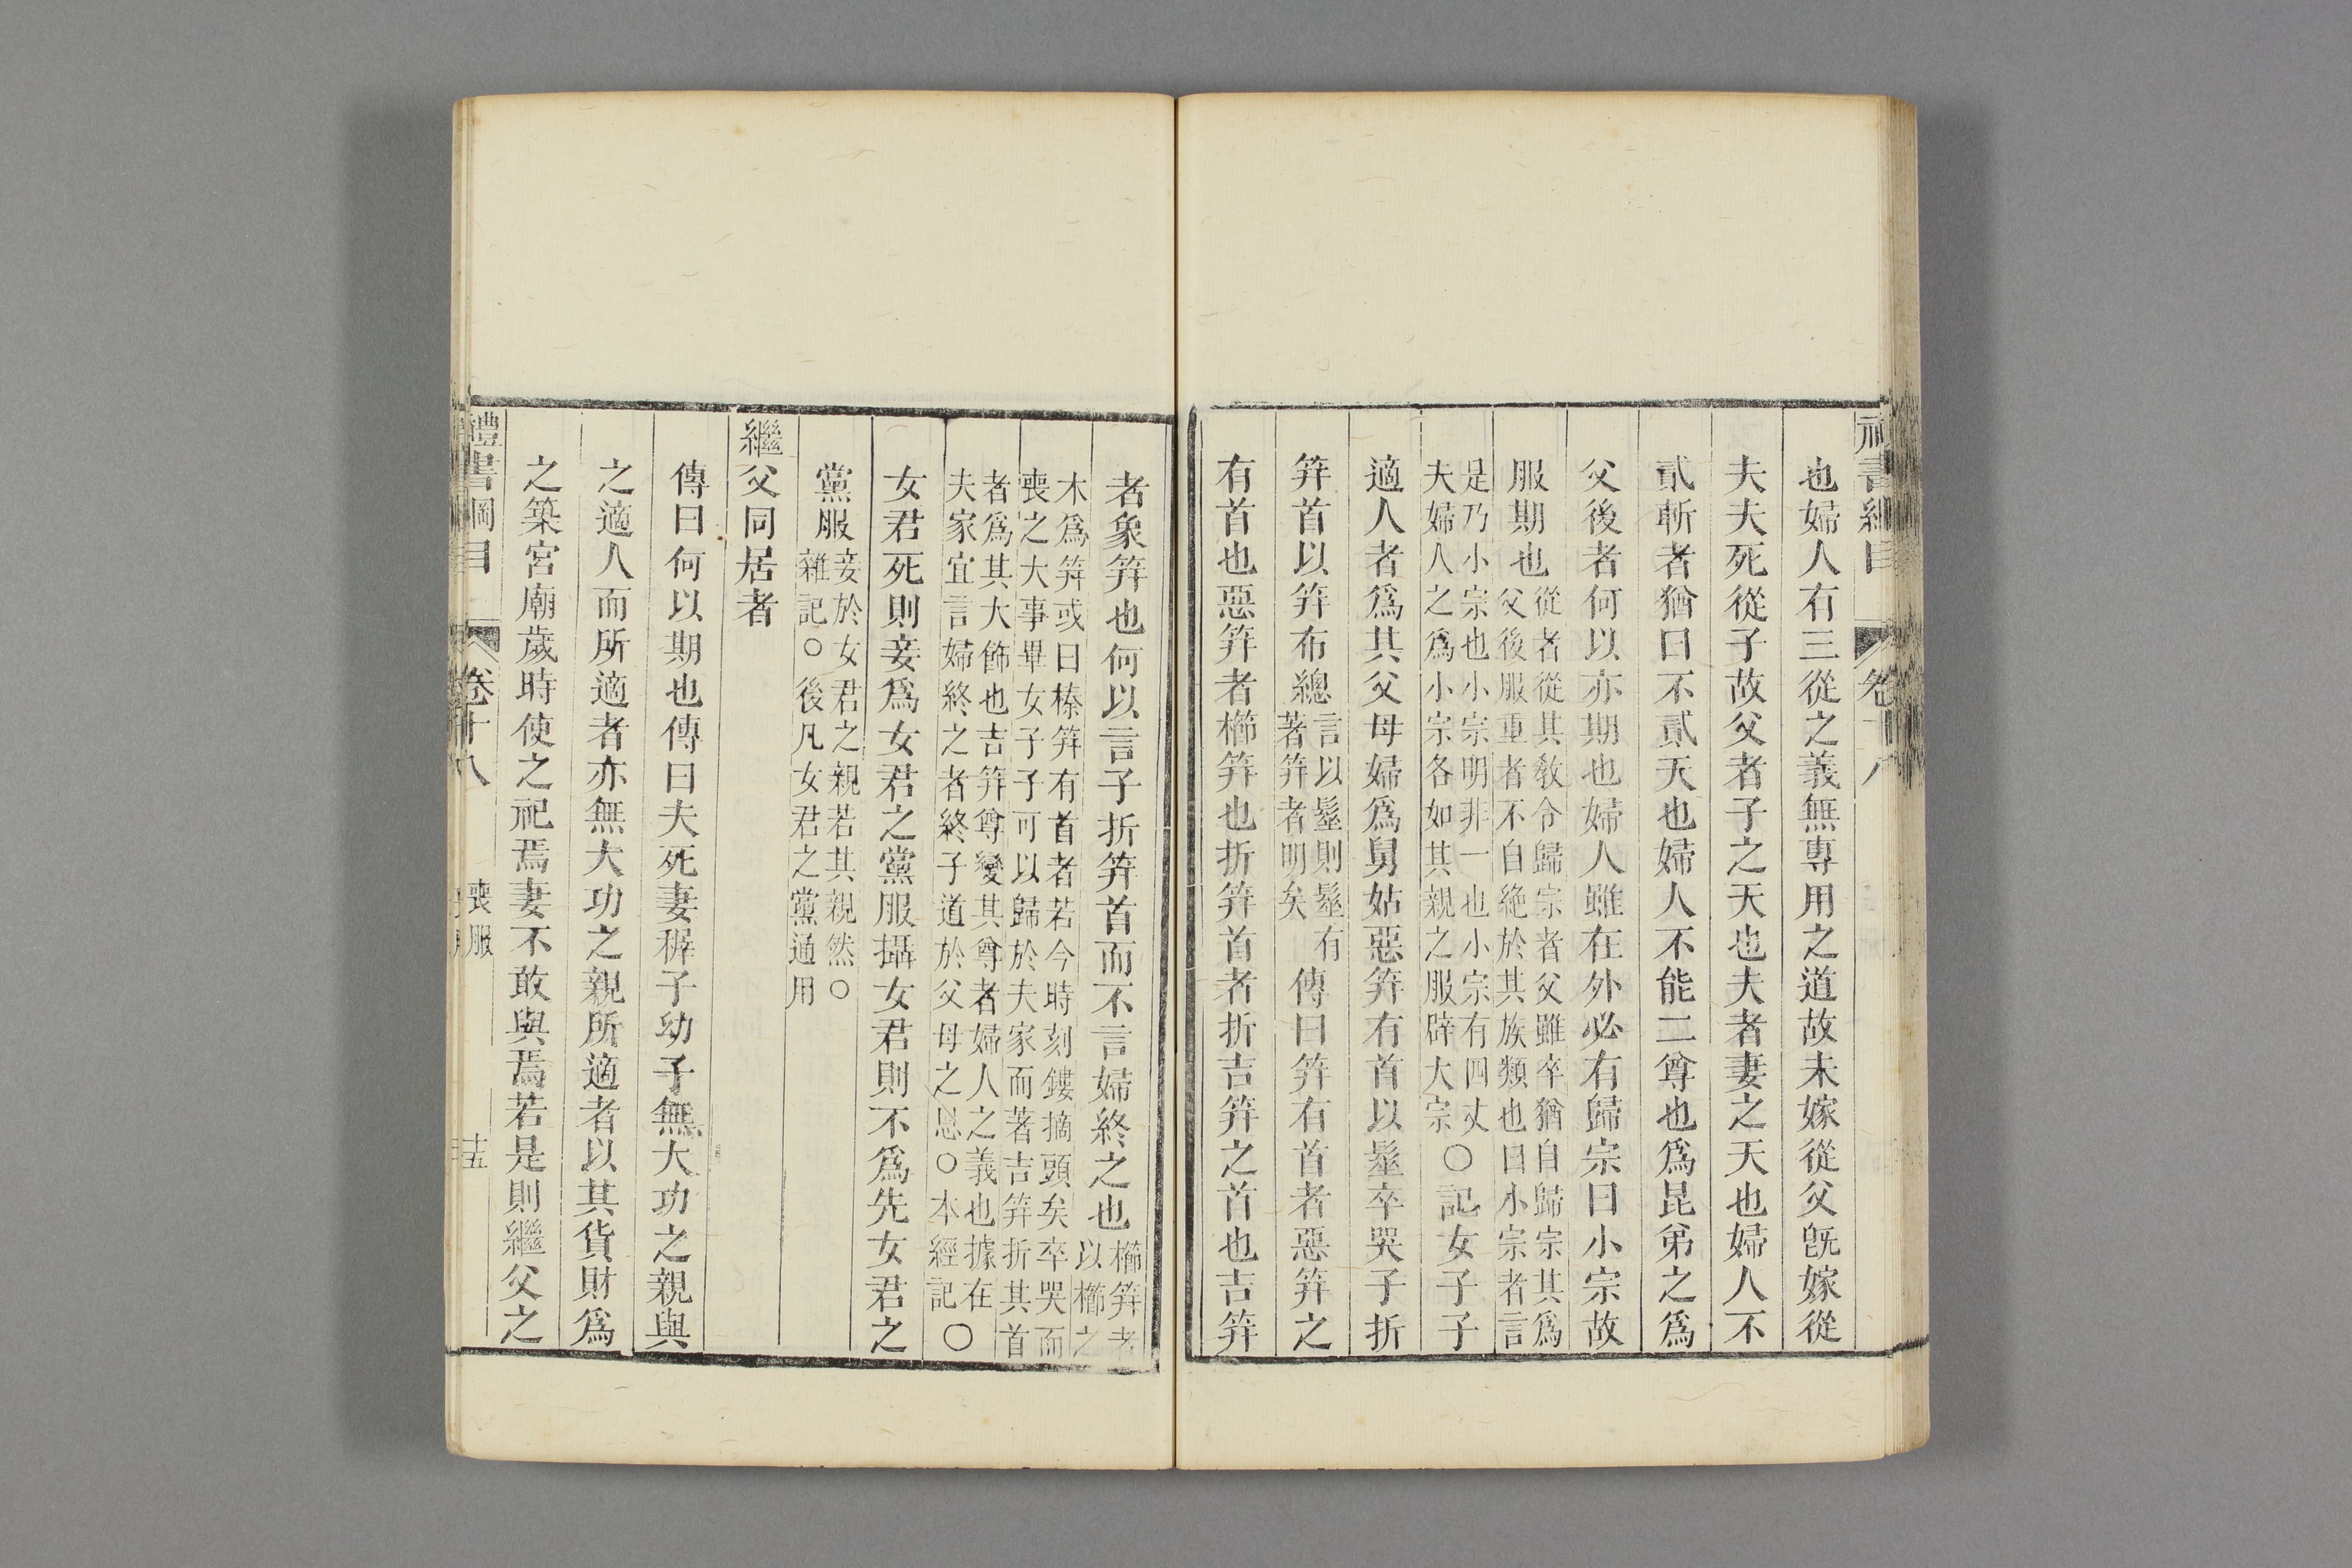 也婦人有三從之義無專用之道故未嫁從父旣嫁從
夫夫死從子故父者子之天也夫者妻之天也婦人不
貳斬者猶曰不貳天也婦人不能二尊也爲昆弟之爲
父後者何以亦期也婦人雖在外必有歸宗曰小宗故
服期也從者從其敎令歸宗者父雖卒猶自歸宗其爲
父後服重者不自絶於其族類也曰小宗者言
是乃小宗也小宗明非一也小宗有四丈
夫婦人之爲小宗各如其親之服辟大宗○記女子子
適人者爲其父母婦爲舅姑惡筓有首以髽卒哭子折
筓首以筓布總言以髽則髽有
著筓者明矣傳曰筓有首者惡筓之
有首也惡筓者櫛筓也折筓首者折吉筓之首也吉筓
者象筓也何以言子折筓首而不言婦終之也櫛筓者
以櫛之
木爲筓或曰榛筓有首者若今時刻鏤摘頭矣卒哭而
喪之大事畢女子子可以歸於夫家而著吉筓折其首
者爲其大飾也吉筓尊變其尊者婦人之義也據在
夫家宜言婦終之者終子道於父母之恩○本經記○
女君死則妾爲女君之黨服攝女君則不爲先女君之
黨服妾於女君之親若其親然○
雜記○後凡女君之黨通用
繼父同居者
傳曰何以期也傳曰夫死妻穉子幼子無大功之親與
之適人而所適者亦無大功之親所適者以其貨財爲
之築宮廟歲時使之祀焉妻不敢與焉若是則繼父之
禮書綱目 卷十八 喪服 十五